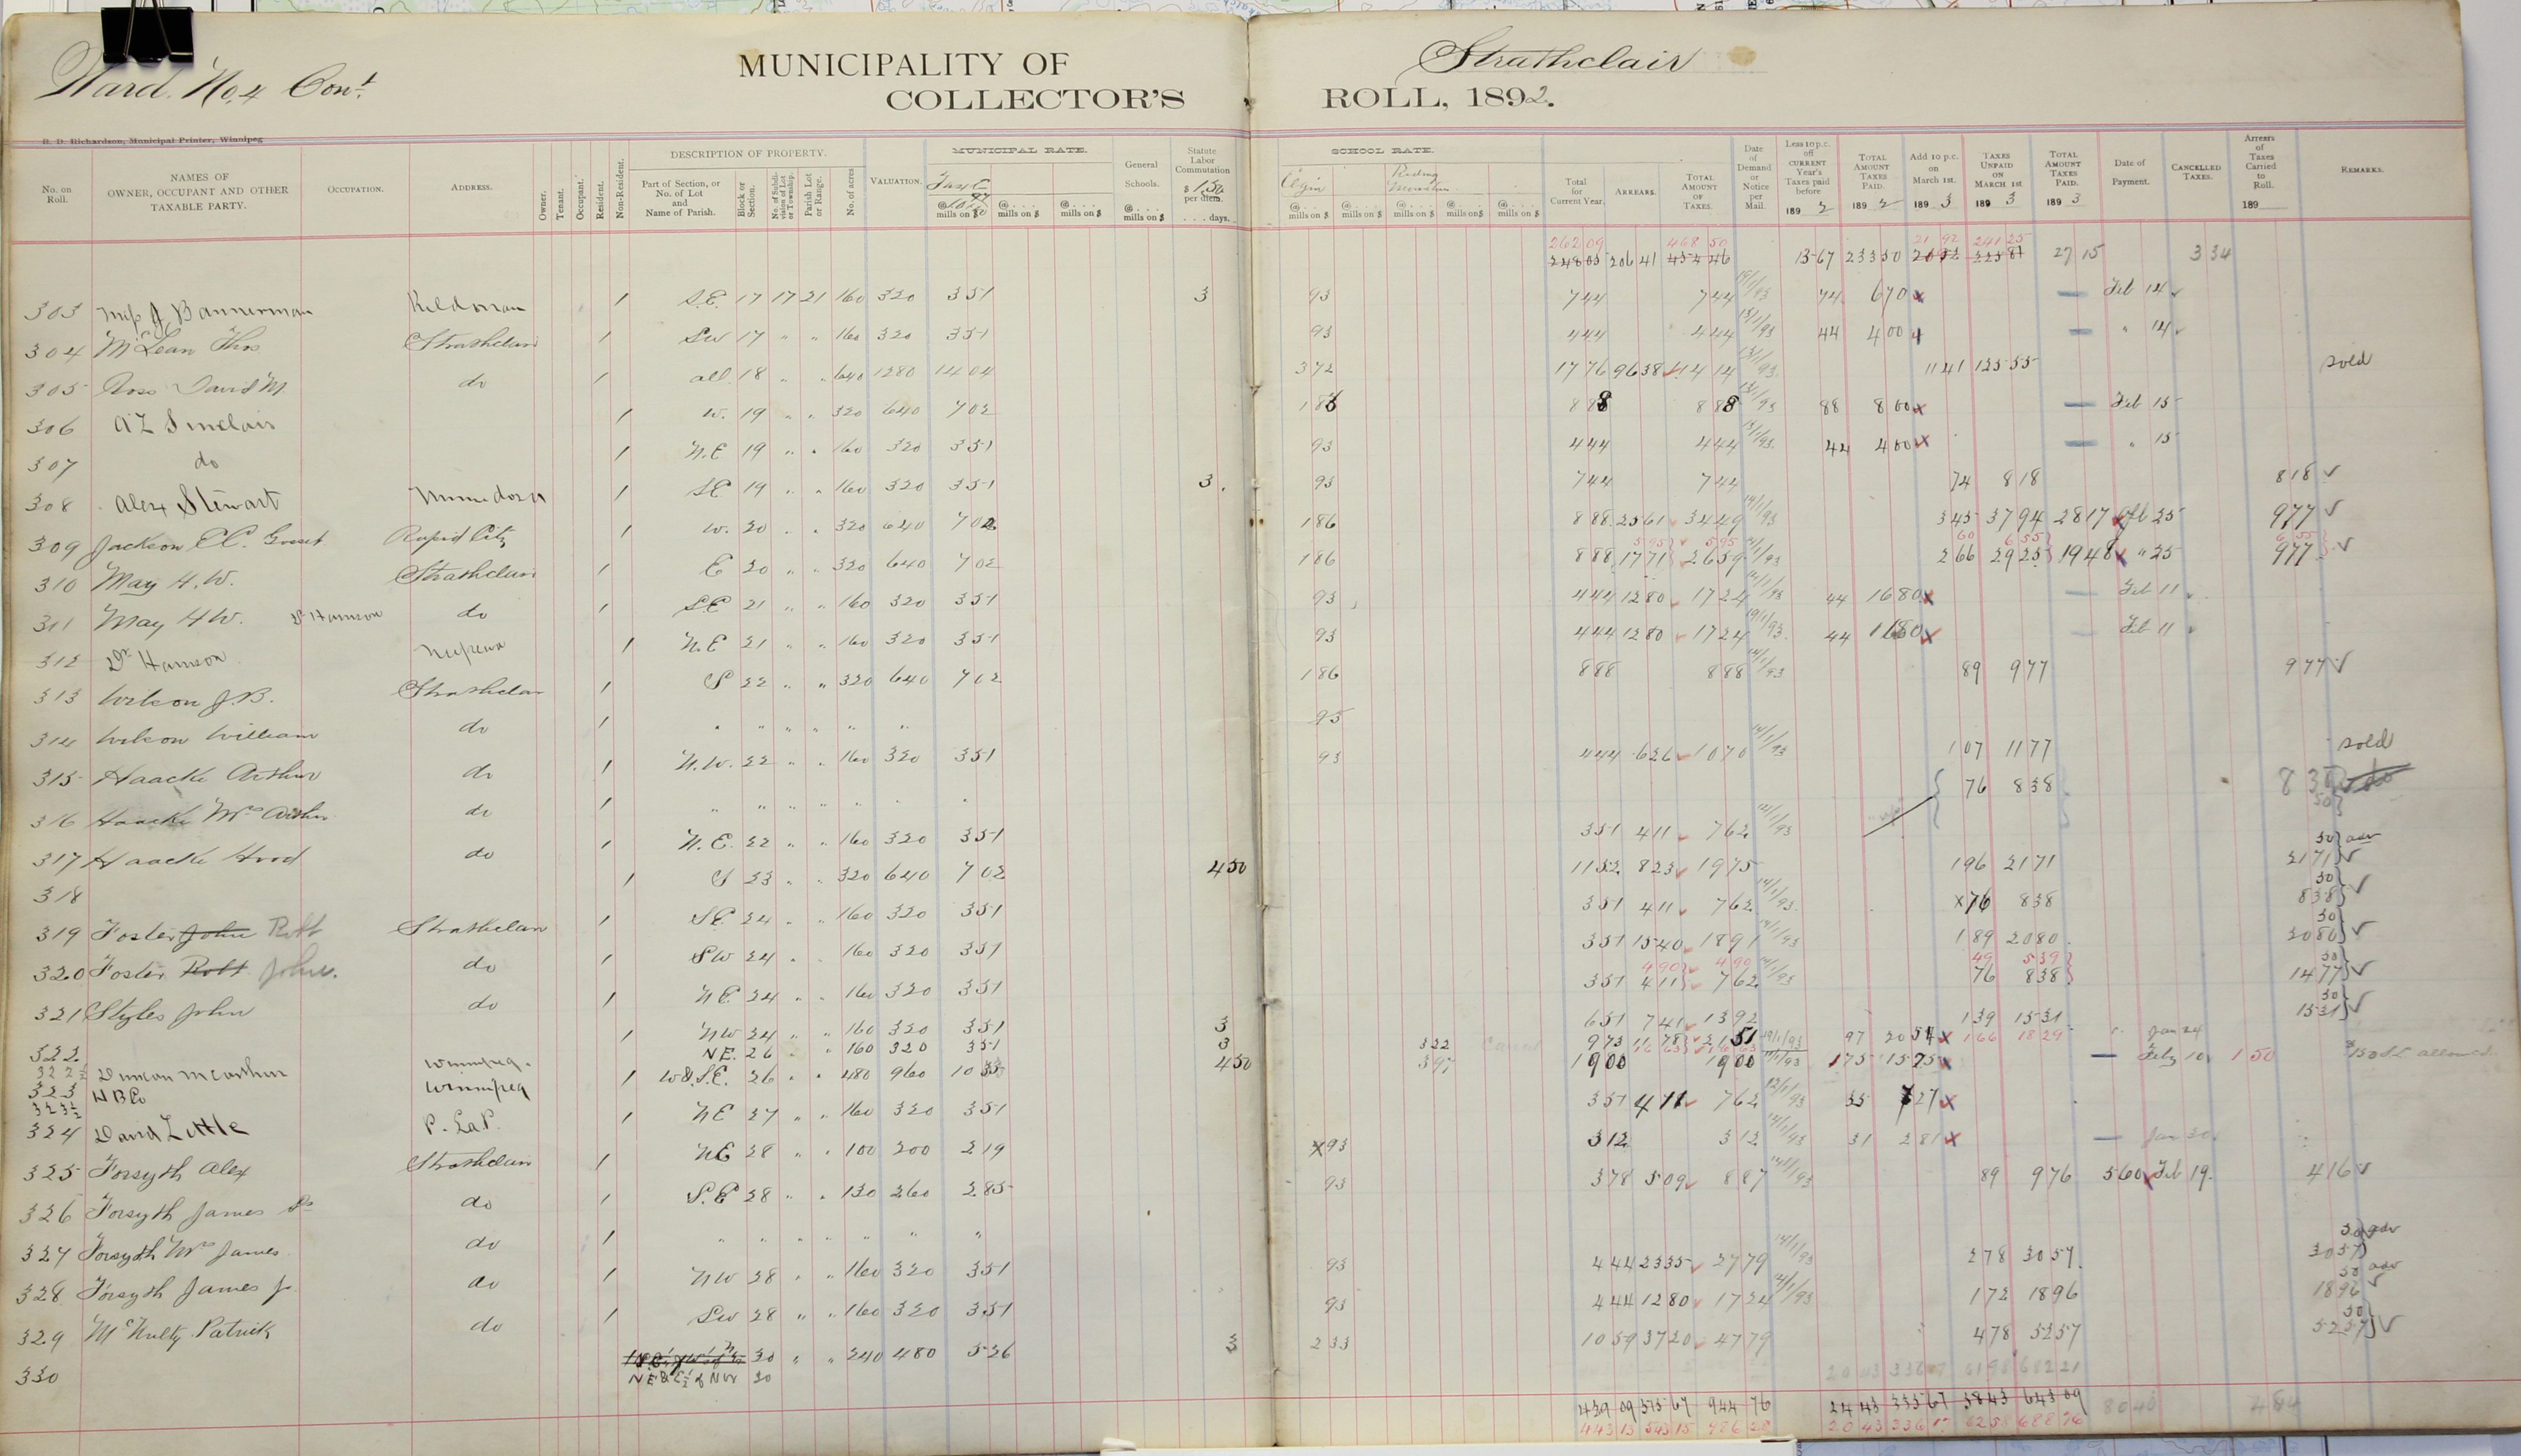 Ward. No. 4 Cont.
MUNICIPALITY OF Strathclair
COLLECTOR'S ROLL, 1892.
R. D. Richardson, Municipal Printer, Winnipeg
No. on Roll. NAMES OF OWNER, OCCUPANT AND OTHER TAXABLE PARTY. OCCUPATION. ADDRESS. Owner. Tenant. Occupant. Resident. Non-Resident. DESCRIPTION OF PROPERTY. Part of Section, or No. of Lot and Name of Parish. Block or Section. No. of Subdivision of Lot or Township. Parish Lot or Range. No. of acres VALUATION. MUNICIPAL RATE. @ mills on $ @ .... mills on $ @ .... mills on $ General Schools. @ .... mills on $ Statute Labor Commutation $ 1.50 per diem. .... days. SCHOOL RATE. Elgin Riding Mountain @ .... mills on $ @ .... mills on $ @ .... mills on $ @ .... mills on $ @ .... mills on $ Total for Current Year. ARREARS. TOTAL AMOUNT OF TAXES. Date of Demand or Notice per Mail. Less 10 p.c. off CURRENT Year's Taxes paid before 189 2 TOTAL AMOUNT TAXES PAID. 189 2 Add 10 p.c. on March 1st. 189 3 TAXES UNPAID ON MARCH 1st 189 3 TOTAL AMOUNT TAXES PAID. 189 3 Date of Payment. CANCELLED TAXES. Arrears of Taxes Carried to Roll. 189 REMARKS.
262 09 468 50 21 92 241 25
248 05 206 41 454 46 13 67 233 50 27 15 3 34
303 J Bannerman Kildonan 1 S.E. 17 17 21 160 320 351 3 93 744 744 74 670 x Feb 14
304 McLean Thos Strathclair 1 SW 17 " " 160 320 351 93 444 444 13/1/93 44 400 x " 14
305 Ross David M. do 1 all 18 " " 640 1280 1404 372 1776 9638 11414 13/1/93 1141 12555 sold
306 A Z Sinclair 1 W. 19 " " 320 640 702 186 888 888 13/1/93 88 800 x Feb 15
307 do 1 N.E 19 " " 160 320 351 93 444 444 13/1/93 44 400 x " 15
308 Alex Stewart Minnedosa 1 SE 19 " " 160 320 351 3 93 744 744 74 818 818 ✓
309 Jackson Rapid City 1 W. 20 " " 320 640 702 186 888 2561 3449 14/1/93 345 3794 2817 Feb 25 977 ✓
595 595 60 655 655
310 May H. W. Strathclair 1 E 20 " " 320 640 702 186 888 1771 2659 266 2925 1948 x " 25 977 ✓
311 May H W. do 1 SE 21 " " 160 320 351 93 444 1280 1724 44 1680 x Feb 11
312 Nepewa 1 N.E 21 " " 160 320 351 93 444 1280 1724 44 1680 x Feb 11
313 Wilson J. B. Strathclair 1 S 22 " " 320 640 702 186 888 888 14/1/93 89 977 977 ✓
314 Wilson William do 1 " " " " " " 93
315 Haacke Arthur do 1 N.W. 22 " " 160 320 351 93 444 626 1070 14/1/93 107 1177 sold
316 Haacke Mrs Arthur do 1 " " " " " " " 76 838
317 Haacke Hood do 1 N.E. 22 " " 160 320 351 351 411 762 50 adv
318 1 S 23 " " 320 640 702 450 1152 823 1975 196 2171 2171 ✓
50
319 Foster John Robt Strathclair 1 SE 24 " " 160 320 351 351 411 762 14/1/93 x76 838 838 ✓
50
320 Foster Robt John. do 1 SW 24 " 160 320 351 351 1540 1891 14/1/93 189 2080 2080 ✓
490 490 49 539 50
321 Styles John do 1 NE 24 " " 160 320 351 351 411 762 76 838 1477 ✓
50
322 1 NW 24 " " 160 320 351 3 651 741 1392 139 1531 1531 ✓
322½ Duncan McArthur Winnipeg. NE. 26 " 160 320 351 3 322 973 1178 2151 97 2054 x 166 1829 Jan 24
323 H B Co Winnipeg 1 W & S.E. 26 " " 480 960 450 397 1900 1900 175 1575 x Feby 10 1 50
323½
324 David Little P. LaP. 1 NE 27 " " 160 320 351 351 411 762 35 727 x
325 Forsyth Alex Strathclair 1 NE 28 " " 100 200 219 93 312 312 14/1/93 31 281 x Jan 20
326 Forsyth James Sr do 1 S.E 28 " " 130 260 285 93 378 509 887 14/1/93 89 976 560 Feb 19. 416 ✓
327 Forsyth Mrs James do 1 " " " " " " "
50 adv
328 Forsyth James Jr do 1 NW 28 " " 160 320 351 93 444 2335 2779 14/1/93 278 3057 3057
50 adv
329 McNulty Patrick do 1 SW 28 " " 160 320 351 93 444 1280 1724 172 1896 1896 ✓
50
330 30 " " 240 480 526 3 233 1059 3720 4779 478 5257 5257 ✓
NE & E½ of NW 30
439 09 944 76 24 43 335 67 58 43 643 09
443 13 543 15 986 28 20 43 336 17 688 76